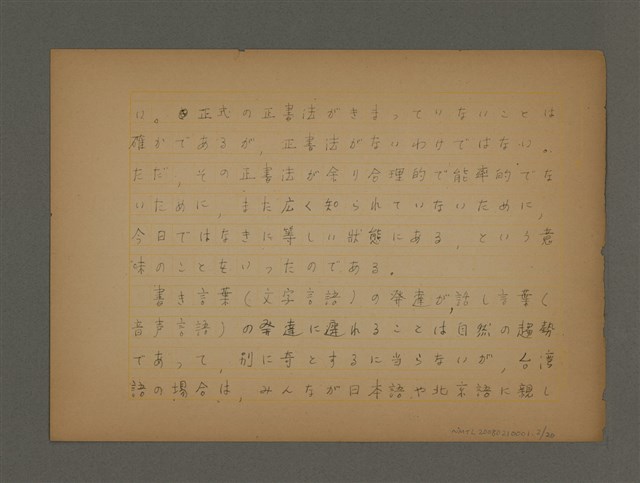 い。正式の正書法がきまっていないことは
確かであるが、正書法がないわけではない。
ただ、その正書法が余り合理的で能率的でな
いために、また広く知られていないために、
今日ではなきに等しい状態にある、という意
味のことをいったのである。
書き言葉(文字言語)の発達が、話し言葉(
音声言語)の発達に遅れることは自然の趨勢
であって、別に奇とするに当らないが、台湾
語の場合は、みんなが日本語や北京語に親し